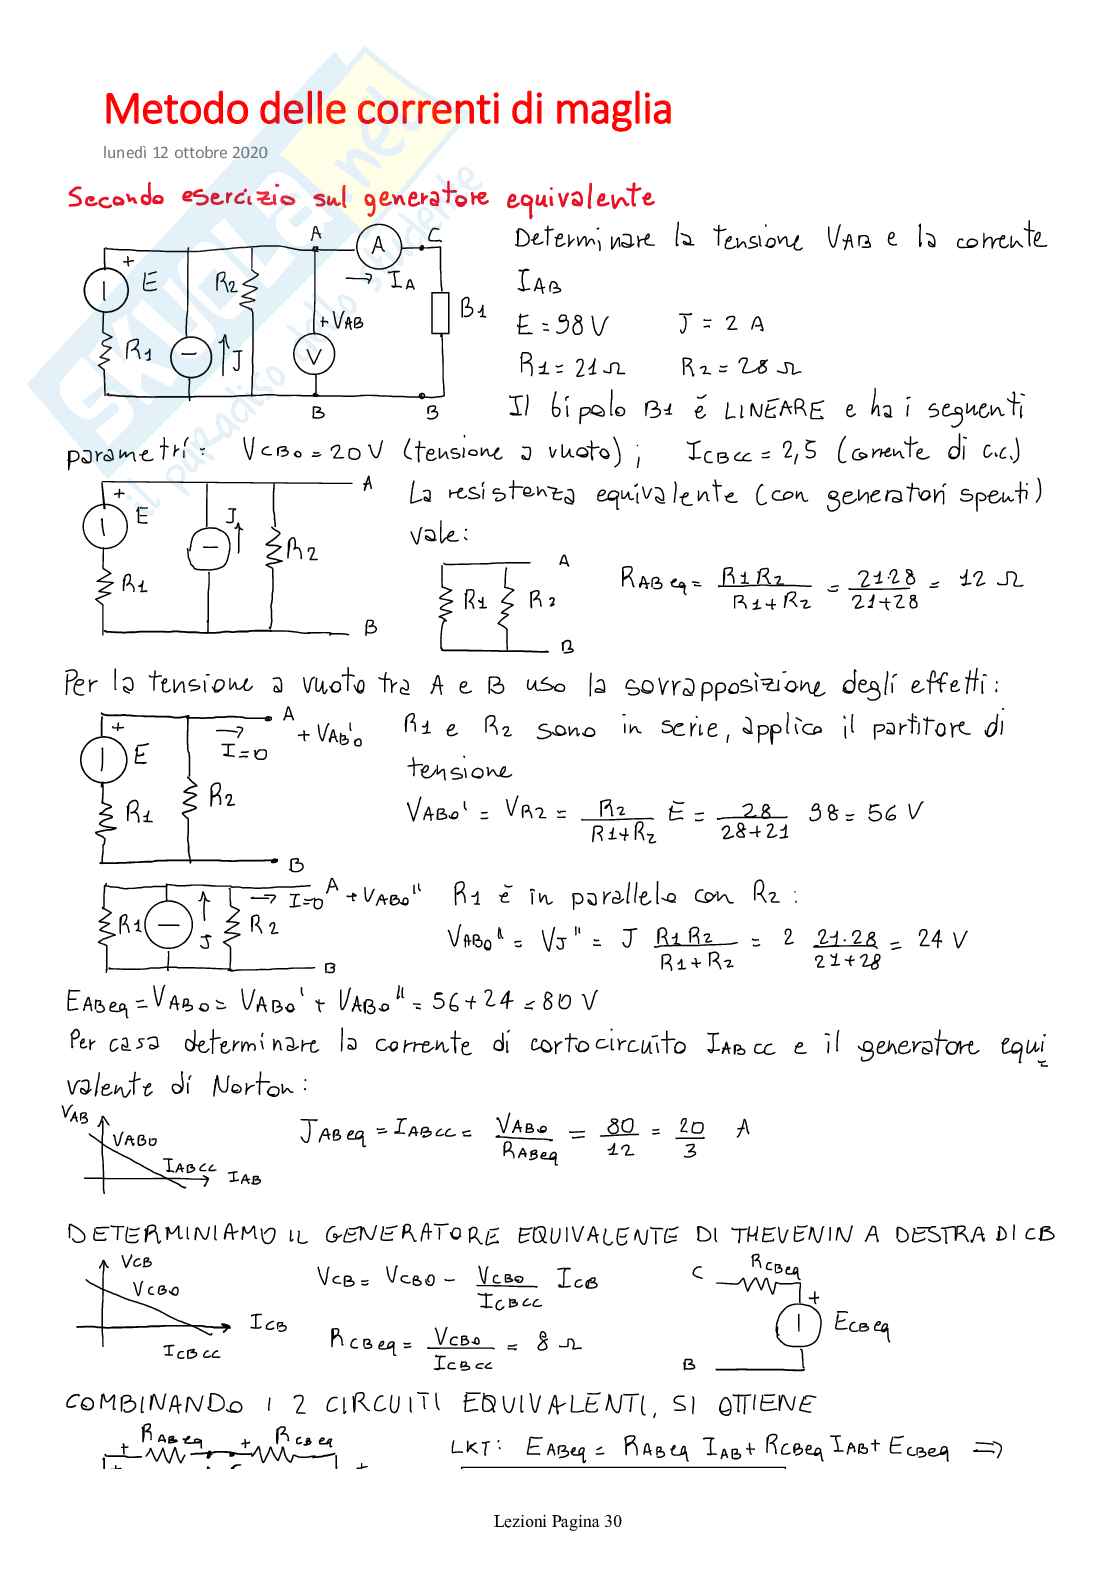 Metodo delle correnti di maglia
lunedì 12 ottobre 2020
Secondo esercizio sul generatore equivalente
Determinare la tensione VAB e la corrente
IAB
E = 98 V J = 2 A
R1 = 21 Ω R2 = 28 Ω
Il bipolo B1 è LINEARE e ha i seguenti
A A C
+ E R2 → IA B1
+ VAB
R1 J V
B B
parametri: VCB0 = 20 V (tensione a vuoto); ICBCC = 2,5 (corrente di c.c.)
La resistenza equivalente (con generatori spenti)
vale:
+ E J R2 A
R1 B
R1 R2 A
B
RABeq = R1 R2 / R1 + R2 = 21·28 / 21+28 = 12 Ω
Per la tensione a vuoto tra A e B uso la sovrapposizione degli effetti:
R1 e R2 sono in serie, applico il partitore di
tensione
+ E → I=0 A + VAB0'
R1 R2 B
VAB0' = VR2 = R2 / R1+R2 E = 28 / 28+21 98 = 56 V
R1 J R2 → I=0 A + VAB0''
B
R1 è in parallelo con R2:
VAB0'' = VJ'' = J R1 R2 / R1 + R2 = 2 21·28 / 21+28 = 24 V
EABeq = VAB0 = VAB0' + VAB0'' = 56 + 24 = 80 V
Per casa determinare la corrente di cortocircuito IABCC e il generatore equi
valente di Norton:
VAB VAB0 IABCC IAB
JABeq = IABCC = VAB0 / RABeq = 80 / 12 = 20 / 3 A
DETERMINIAMO IL GENERATORE EQUIVALENTE DI THEVENIN A DESTRA DI CB
VCB VCB0 ICB ICBCC
VCB = VCB0 - VCB0 / ICBCC ICB
RCBeq = VCB0 / ICBCC = 8 Ω
C RCBeq + ECBeq B
COMBINANDO I 2 CIRCUITI EQUIVALENTI, SI OTTIENE
+ RABeq + RCBeq
LKT: EABeq = RABeq IAB + RCBeq IAB + ECBeq ⇒
Lezioni Pagina 30
SKUOLA.net
il paradiso dello studente